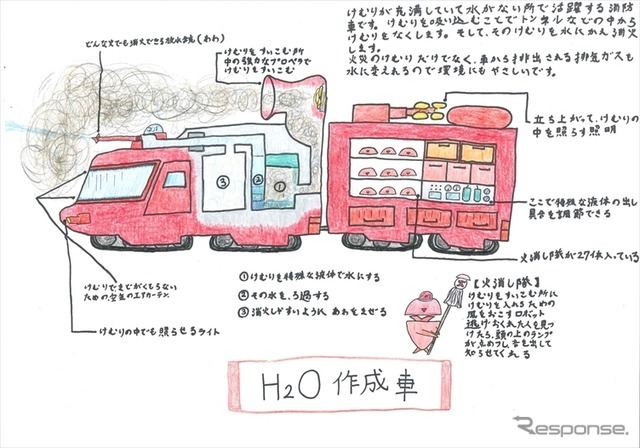 けむりが充満していて水がない所で活躍する消防
車です。けむりを吸い込むことでトンネルなどの中から
けむりをなくします。そして、そのけむりを水にかえ消火
します。
火災のけむりだけでなく、車から排出される排気ガスも
水に変えれるので環境にもやさしいです。
どんな火でも消火できる放水銃(あわ)
けむりをすいこむ所
中の強力なプロペラで
けむりをすいこむ
立ち上がって、けむりの
中を照らす照明
ここで特殊な液体の出し
具合を調節できる
火消し隊が27体入っている
③
②
①
けむりでまどがくもらない
ための空気のエアカーテン
けむりの中でも照らせるライト
①けむりを特殊な液体で水にする
②その水をろ過する
③消火しやすいように あわをまぜる
【火消し隊】
けむりをすいこむ所に
けむりを入れるための
風をおこすロボット
逃げおくれた人を見つ
けたら、頭の上のランプ
が点めつし、音を出して
知らせてくれる
H2O 作成車
Response.